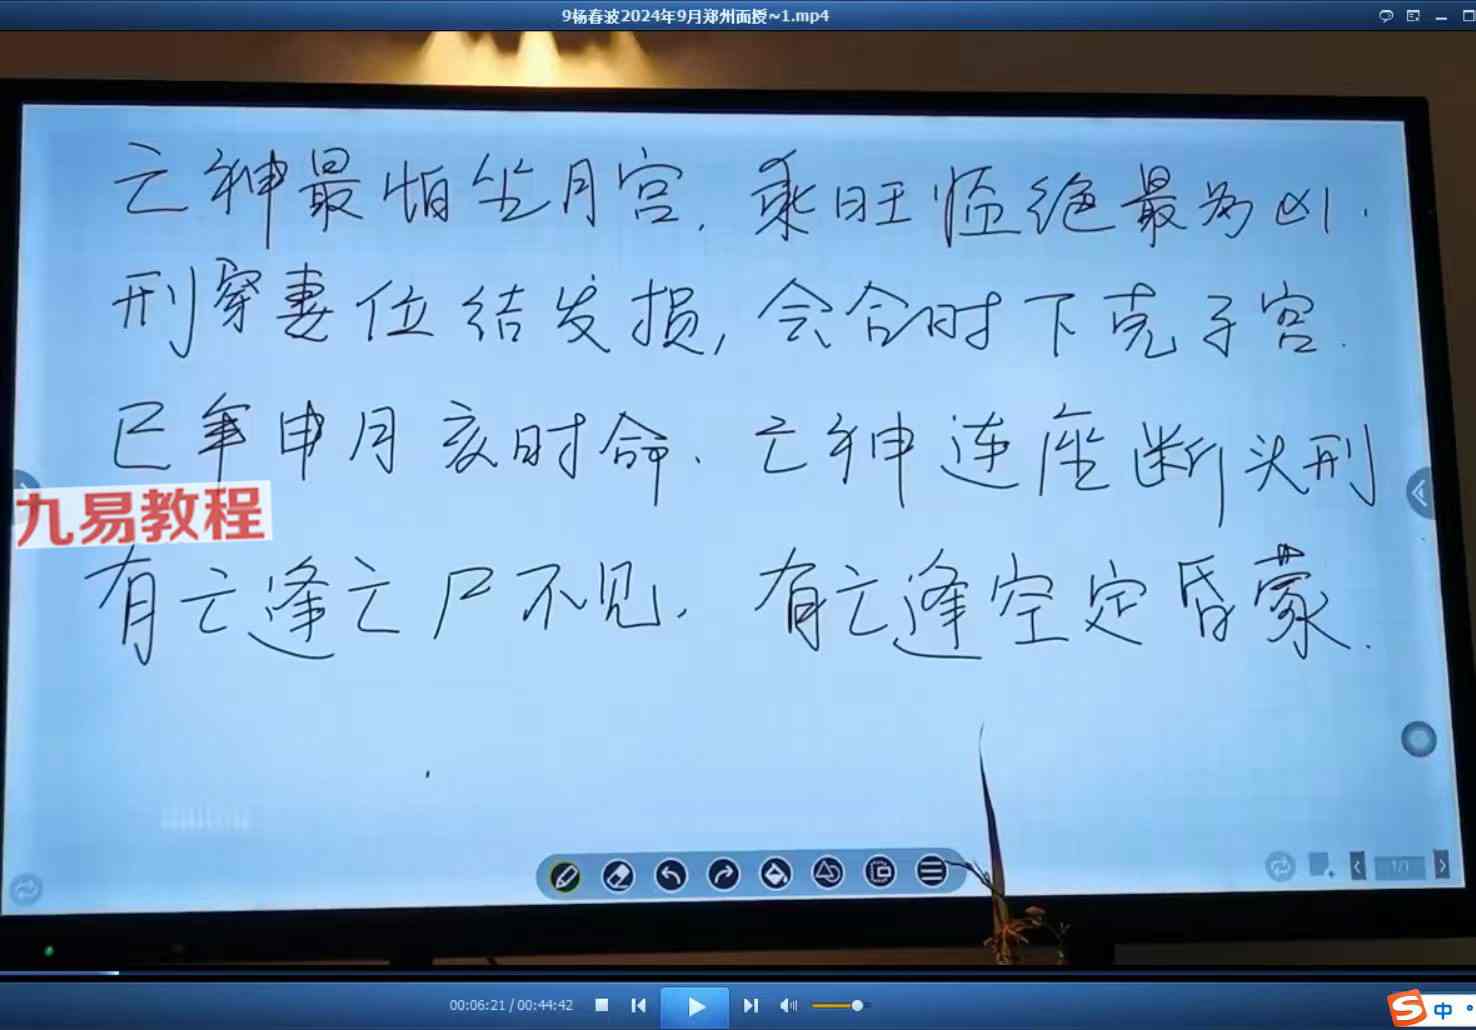 9杨春波2024年9月郑州面授~1.mp4
亡神最怕坐月宫，乘旺临绝最为凶.
刑穿妻位结发损，会合时下克子宫.
巳年申月亥时命、亡神连座断头刑
九易教程
有亡逢亡尸不见，有亡逢空定昏蒙.
1/1
00:06:21 / 00:44:42
S中